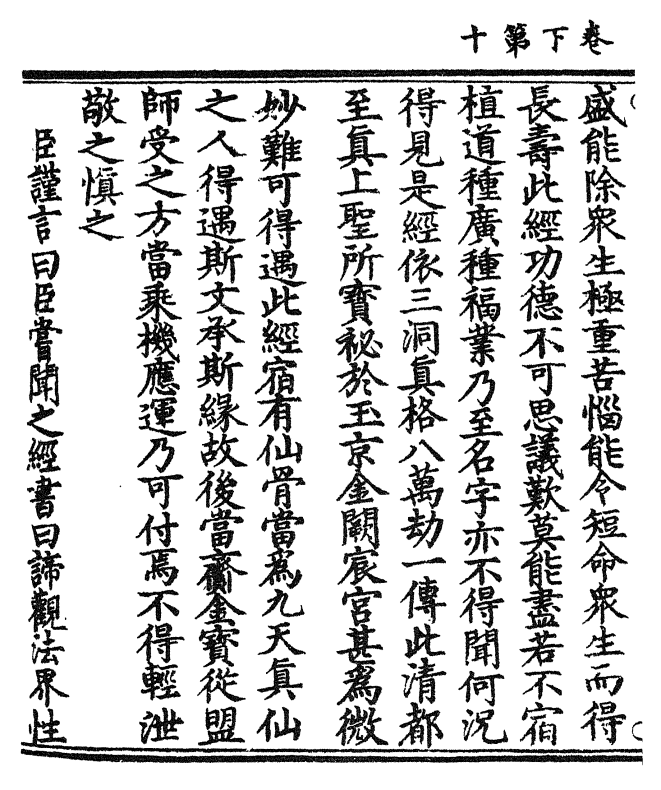 卷下第十
盛能除衆生極重苦惱能令短命衆生而得
長壽此經功德不可思議歎莫能盡若不宿
植道種廣種福業乃至名字亦不得聞何況
得見是經依三洞眞格八萬劫一傳此清都
至眞上聖所寶祕於玉京金闕宸宮甚爲微
妙難可得遇此經宿有仙骨當爲九天眞仙
之人得遇斯文承斯緣故後當齎金寶從盟
師受之方當乘機應運乃可付焉不得輕泄
敬之愼之
臣謹言曰臣嘗聞之經書曰諦觀法界性